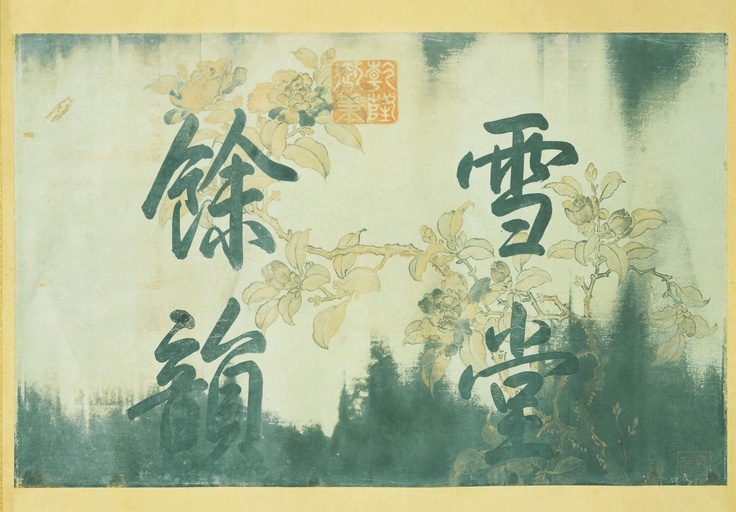 雪堂
餘韻
乾隆
御筆